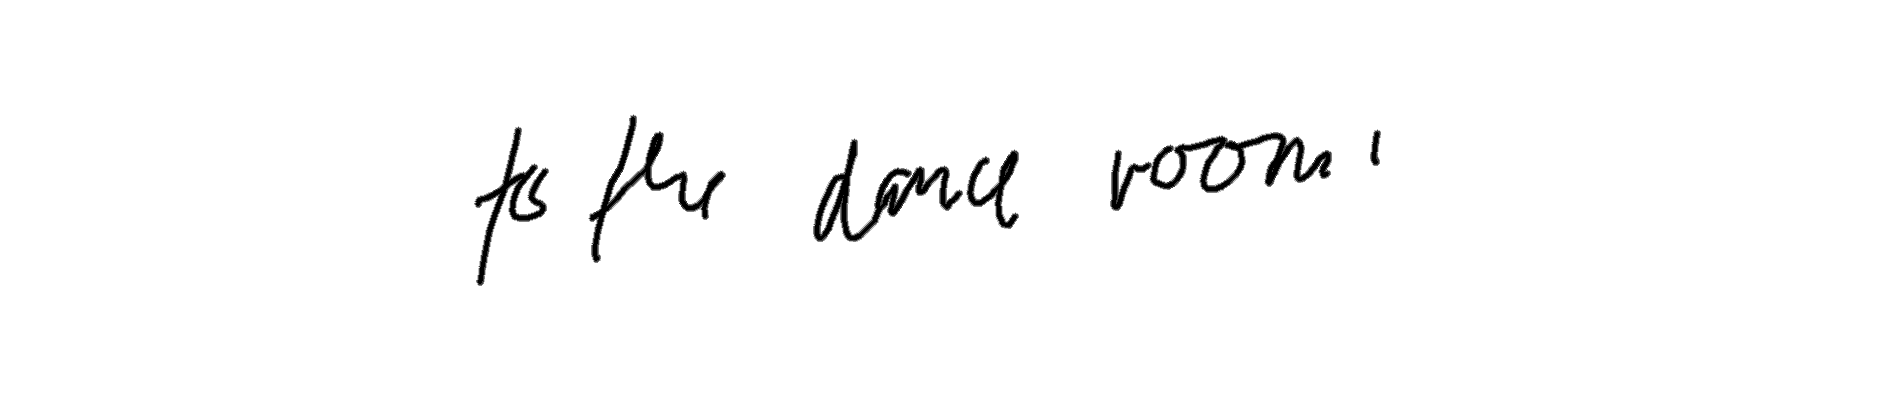 to the dance room '